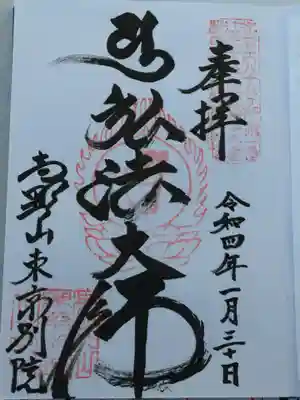 奉拝
令和四年一月三十日
弘法大師
高野山東京別院